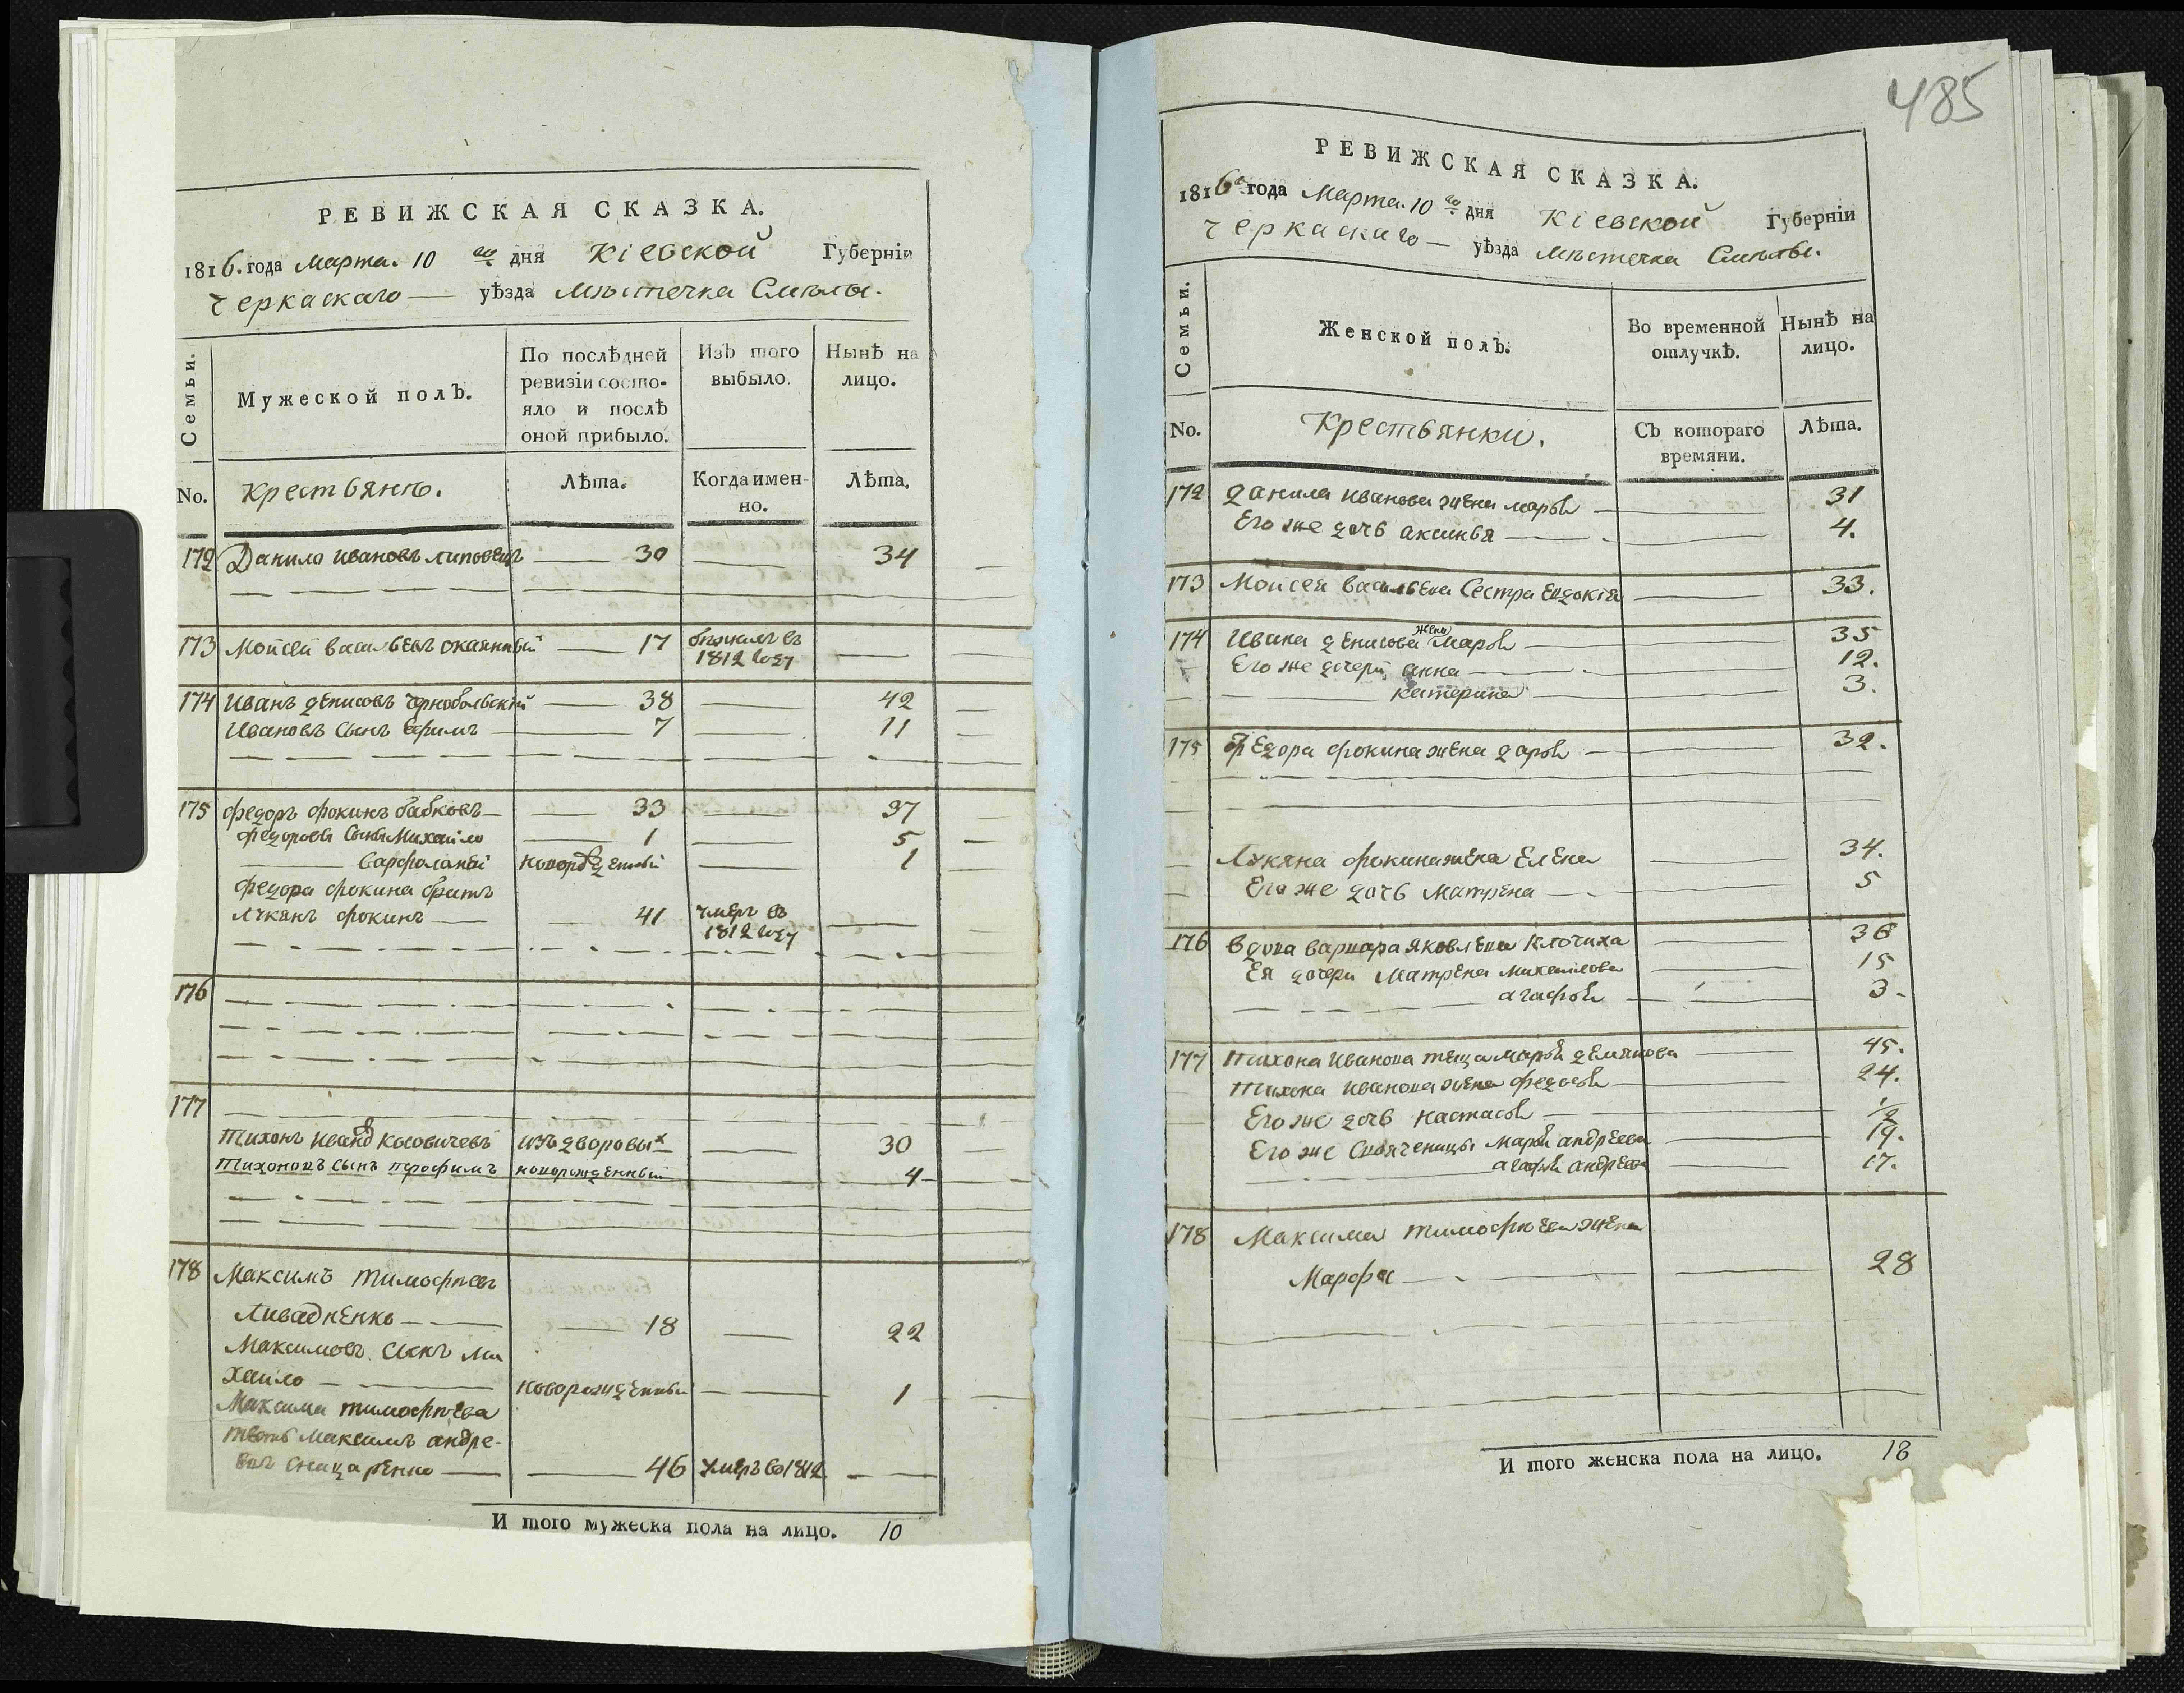 РЕВИЖСКАЯ СКАЗКА.
1816. года Марта. 10 го дня Кіевской Губерніи
Черкаскаго — уѣзда Мѣстечка Смѣлы.
Семьи.
Мужеской полЪ.
По послѣдней ревизіи состо-
яло и послѣ
оной прибыло.
ИзЪ того
выбыло.
Нынѣ на
лицо.
No.
Крестьянъ.
Лѣта.
Когда имен-
но.
Лѣта.
172 Данило Ивановъ Липовецъ — 30 — 34
173 Мойсей Васильевъ Окаянный — 17 бѣжалъ въ
1812 году
174 Иванъ Денисовъ Чернобыльскій — 38 — 42
Ивановъ Сынъ Ефимъ — 7 — 11
175 Федоръ Фокинъ Бабковъ — 33 — 37
Федоровы Сыны Михайло — 1 — 5
Варфоламей новорожденный — 1
Федора Фокина братъ
Лукянъ Фокинъ — 41 умеръ въ
1812 году
176
177
Тихонъ Ивановъ Косовичевъ изъ дворовых — 30
Тихоновъ Сынъ Трофимъ новорожденный 4
178 Максимъ Тимофѣевъ
Ливадненко — 18 — 22
Максимовъ Сынъ Ми
хайло — новорожденный — 1
Максима Тимофѣева
тесть Максимъ Андре-
евъ Сницаренко — 46 умеръ въ 1812
И того мужеска пола на лицо. 10
485
РЕВИЖСКАЯ СКАЗКА.
1816 года Марта. 10 го дня Кіевской Губерніи
Черкаскаго — уѣзда Мѣстечка Смѣлы.
Семьи.
Женской полЪ.
Во временной
отлучкѣ.
Нынѣ на
лицо.
No.
Крестьянки.
СЪ котораго
времяни.
Лѣта.
172 Данила Иванова жена Марья — 31
Его же дочь Аксинья — 4.
173 Мойсея Васильева Сестра Евдокія — 33.
174 Ивана Денисова жена Марья — 35
Его же дочери Анна — 12.
Катерина — 3.
175 Федора Фокина жена Дарья — 32.
Лукяна Фокина жена Елена — 34.
Его же дочь Матрена — 5
176 Вдова Варвара Яковлева Клочиха — 36
Ея дочери Матрена Михайлова — 15
Агафья — 3.
177 Тихона Иванова теща Марья Демянова — 45.
Тихона Иванова жена Федосья — 24.
Его же дочь Настасья — 1/2
Его же Своячиницы Марья Андреева — 19.
Агафья Андреева 17.
178 Максима Тимофѣева жена
Марфа — 28
И того женска пола на лицо. 18